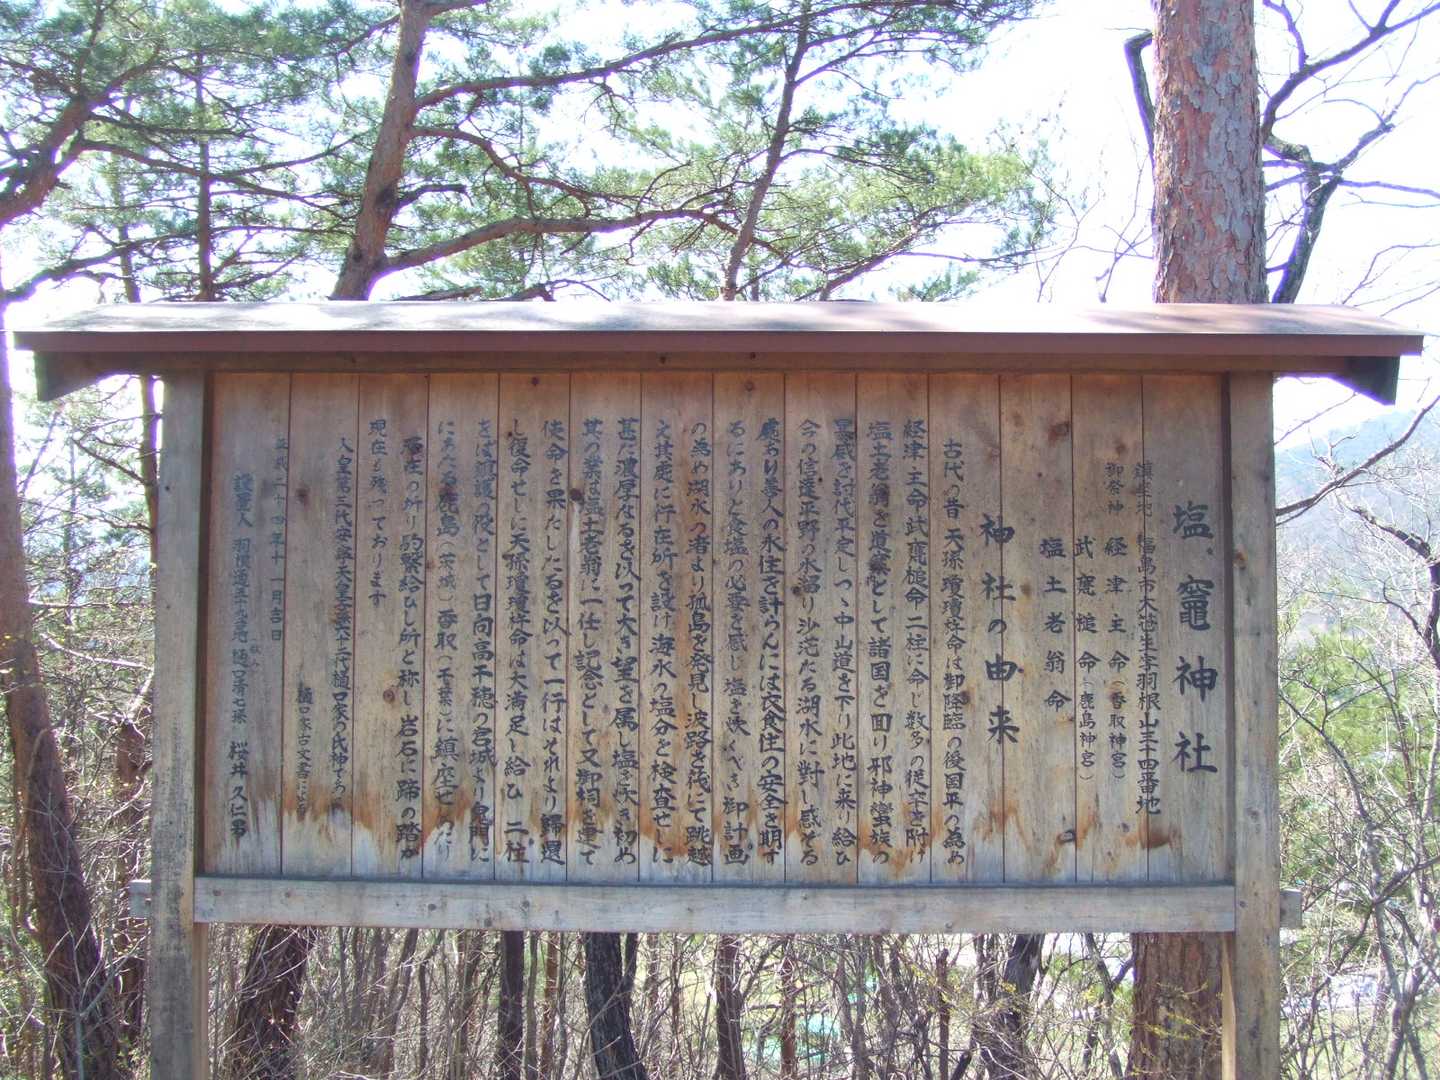 塩竈神社
鎮座地 福島市大笹生字羽根山三十四番地
御祭神 経津主命（香取神宮）
武甕槌命（鹿島神宮）
塩土老翁命
神社の由来
古代の昔天孫瓊瓊杵命は御降臨の後国平の為め
経津主命武甕槌命二柱に命じ数多の従卒を附け
塩土老翁を道案として諸国を回り邪神蛮族の
悪威を討代平定しつゝ中山道を下り此地に来り給ひ
今の信達平野の水溜り沙沱たる湖水に對し感ぞる
處あり善人の永住を計らんには衣食住の安全を期す
るにありと食塩の必要を感じ塩を吹くべき御計画
の為め湖水の渚より孤島を発見し波路を筏にて跳越
え其處に行在所を設け海水の塩分を検査せしに
甚だ濃厚なるを以って大き望を属し塩を吹き初め
其の業は塩土老翁に一任し記念として又御祠を建て
使命を果たしたるを以って一行はそれより歸還
し復命せしに天孫瓊瓊杵命は大満足し給ひ 二柱
をば鎮護の役として日向高千穂の宮城より鬼門に
にあたる鹿島（茨城）香取（千葉）に鎮座せり
在の折り駒繋給ひし所と称し岩石に蹄の踏か
現在も残っております
人皇第三代安寧天皇 樋口家の氏神であ
樋口家古文書による
平成二十四年十一月吉日
羽根 樋口 桜井久仁男